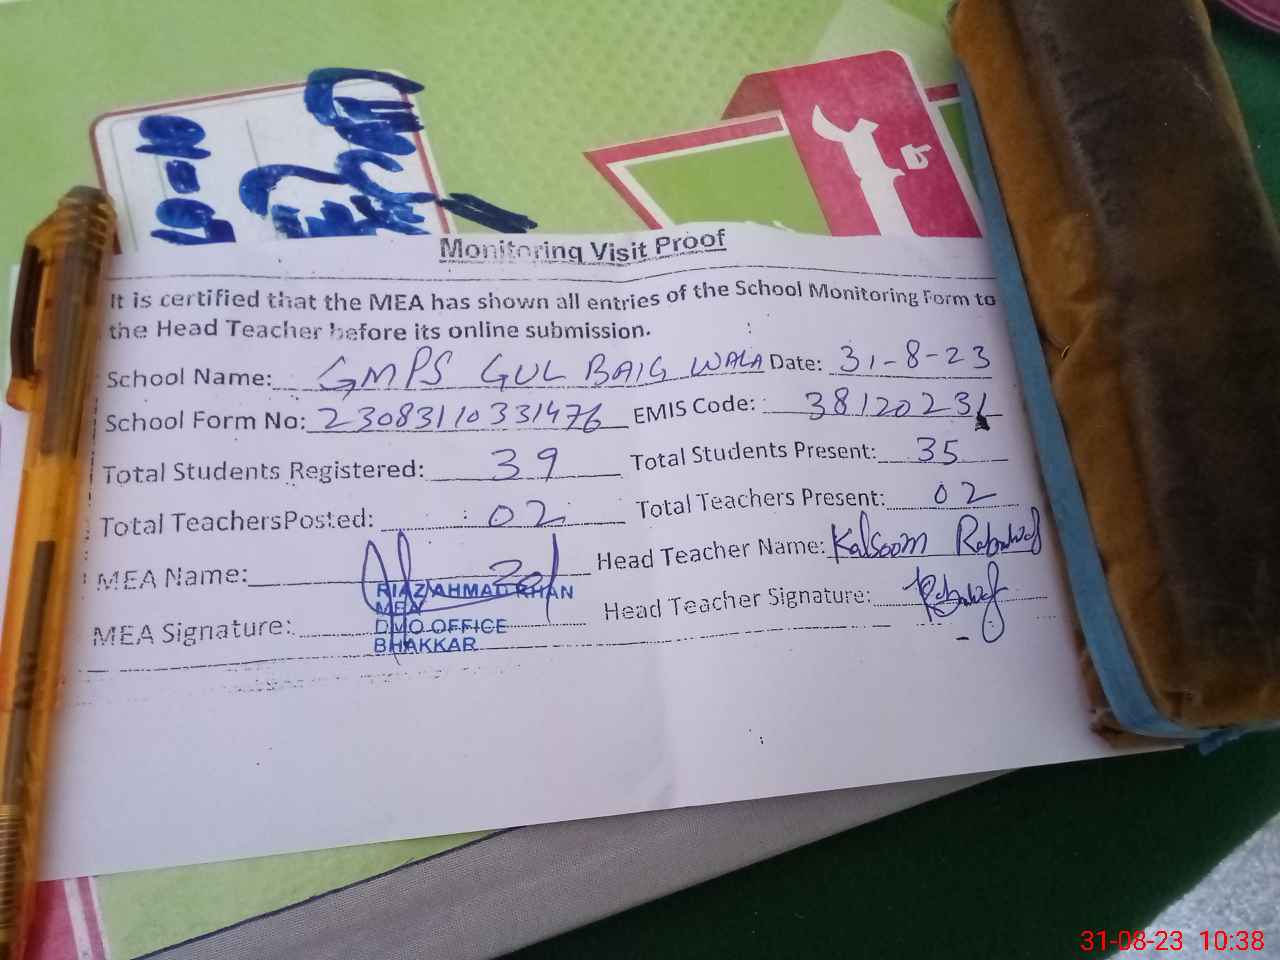 Monitoring Visit Proof
It is certified that the MEA has shown all entries of the School Monitoring Form to
the Head Teacher before its online submission.
School Name: GMPS GUL BAIG WALA Date: 31-8-23
School Form No: 23083110331476 EMIS Code: 38120231
Total Students Registered: 39 Total Students Present: 35
Total TeachersPosted: 02 Total Teachers Present: 02
MEA Name: Head Teacher Name: Kalsoom
RIAZ AHMAD KHAN
MEA
MEA Signature: Head Teacher Signature:
DMO OFFICE
BHAKKAR
31-08-23 10:38